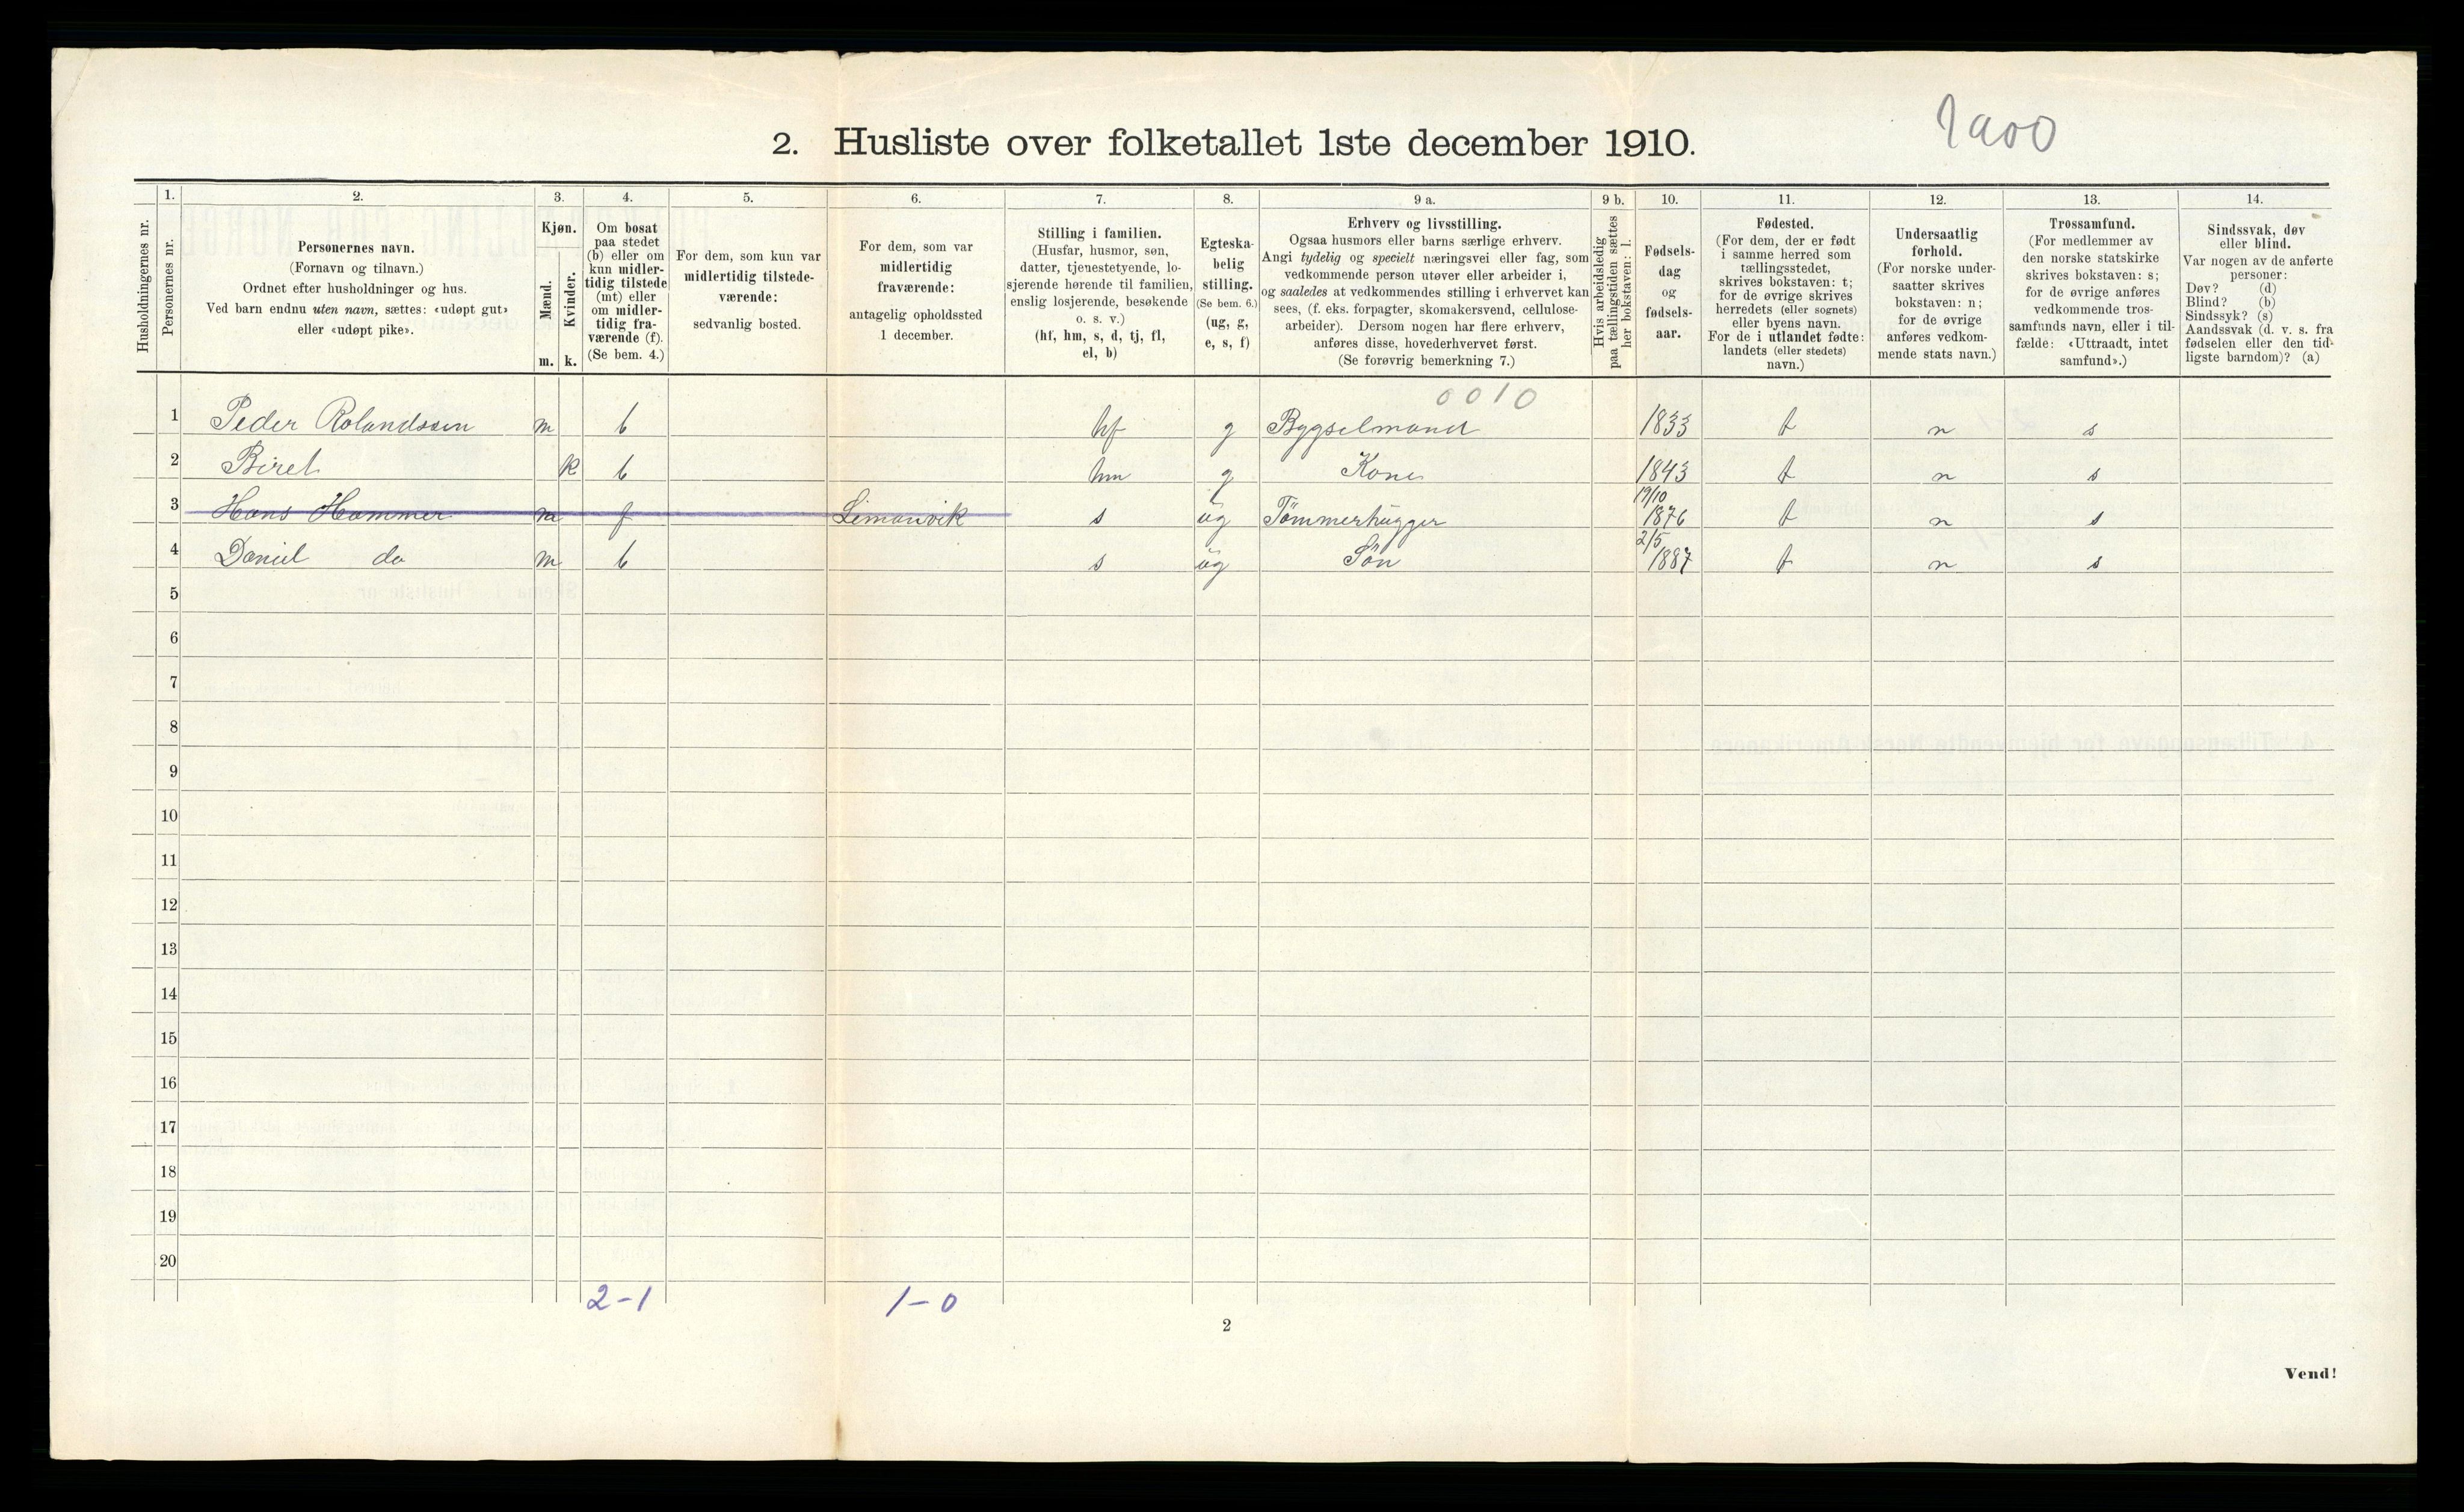 2. Husliste over folketallet 1ste december 1910.
Husholdningernes nr.
1.
Personernes nr.
2.
Personernes navn.
(Fornavn og tilnavn.)
Ordnet efter husholdninger og hus.
Ved barn endnu uten navn, sættes: «udøpt gut»
eller «udøpt pike».
3.
Kjøn.
Mænd.
Kvinder.
m. k.
4.
Om bosat
paa stedet
(b) eller om
kun midler-
tidig tilstede
(mt) eller
om midler-
tidig fra-
værende (f).
(Se bem. 4.)
5.
For dem, som kun var
midlertidig tilstede-
værende:
sedvanlig bosted.
6.
For dem, som var
midlertidig
fraværende:
antagelig opholdssted
1 december.
7.
Stilling i familien.
(Husfar, husmor, søn,
datter, tjenestetyende, lo-
sjerende hørende til familien,
enslig losjerende, besøkende
o. s. v.)
(hf, hm, s, d, tj, fl,
el, b)
8.
Egteska-
belig
stilling.
(Se bem. 6.)
(ug, g,
e, s, f)
9 a.
Erhverv og livsstilling.
Ogsaa husmors eller barns særlige erhverv.
Angi tydelig og specielt næringsvei eller fag, som
vedkommende person utøver eller arbeider i,
og saaledes at vedkommendes stilling i erhvervet kan
sees, (f. eks. forpagter, skomakersvend, cellulose-
arbeider). Dersom nogen har flere erhverv,
anføres disse, hovederhvervet først.
(Se forøvrig bemerkning 7.)
9 b.
Hvis arbeidsledig
paa tællingstiden sættes
her bokstaven: l.
10.
Fødsels-
dag
og
fødsels-
aar.
11.
Fødested.
(For dem, der er født
i samme herred som
tællingsstedet,
skrives bokstaven: t;
for de øvrige skrives
herredets (eller sognets)
eller byens navn.
For de i utlandet fødte:
landets (eller stedets)
navn.)
12.
Undersaatlig
forhold.
(For norske under-
saatter skrives
bokstaven: n;
for de øvrige
anføres vedkom-
mende stats navn.)
13.
Trossamfund.
(For medlemmer av
den norske statskirke
skrives bokstaven: s;
for de øvrige anføres
vedkommende tros-
samfunds navn, eller i til-
fælde: «Uttraadt, intet
samfund».)
14.
Sindssvak, døv
eller blind.
Var nogen av de anførte
personer:
Døv? (d)
Blind? (b)
Sindssyk? (s)
Aandssvak (d. v. s. fra
fødselen eller den tid-
ligste barndom)? (a)
0010
1 Peder Rolandssen m b hf g Bygselmand 1833 t n s
2 Beret k b hm g Kone 1843 t n s
3 Hans Hammer m f ug Tømmerhugger 19/10 1876 t n s
4 Daniel do m b s ug Søn 2/5 1887 t n s
5
6
7
8
9
10
11
12
13
14
15
16
17
18
19
20
2-1 1-0
2
Vend!